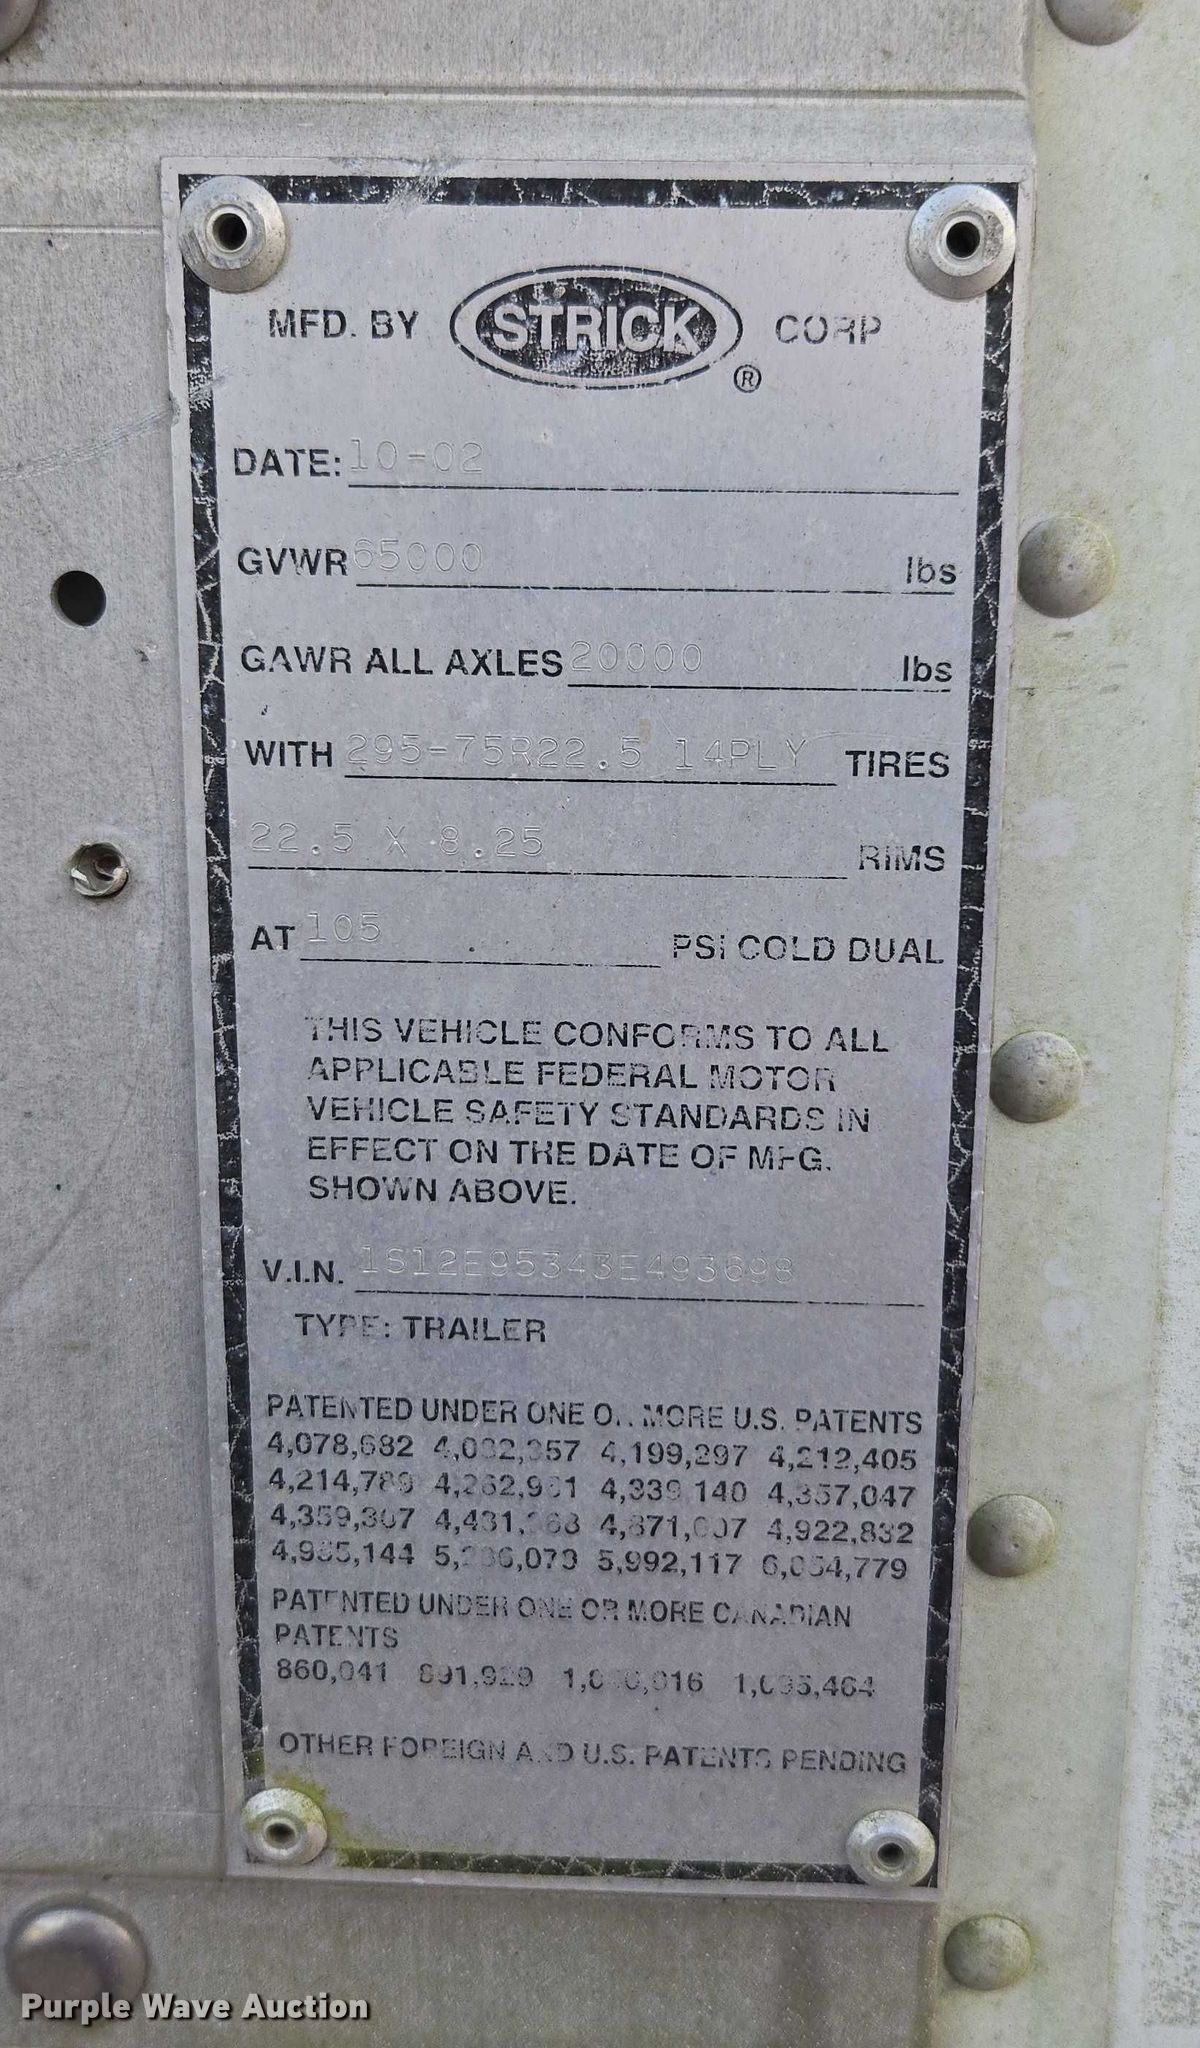 MFD. BY STRICK ® CORP
DATE: 10-02
GVWR 65000 lbs
GAWR ALL AXLES 20000 lbs
WITH 295-75R22.5 14PLY TIRES
22.5 X 8.25 RIMS
AT 105 PSI COLD DUAL
THIS VEHICLE CONFORMS TO ALL
APPLICABLE FEDERAL MOTOR
VEHICLE SAFETY STANDARDS IN
EFFECT ON THE DATE OF MFG.
SHOWN ABOVE.
V.I.N. 1S12E95343E493698
TYPE: TRAILER
PATENTED UNDER ONE OR MORE U.S. PATENTS
4,078,682 4,199,297 4,212,405
4,214,789 4,339,140 4,357,047
4,359,307 4,922,832
4,955,144 5,992,117
PATENTED UNDER ONE OR MORE CANADIAN
PATENTS
860,041 891,929
OTHER FOREIGN AND U.S. PATENTS PENDING
Purple Wave Auction